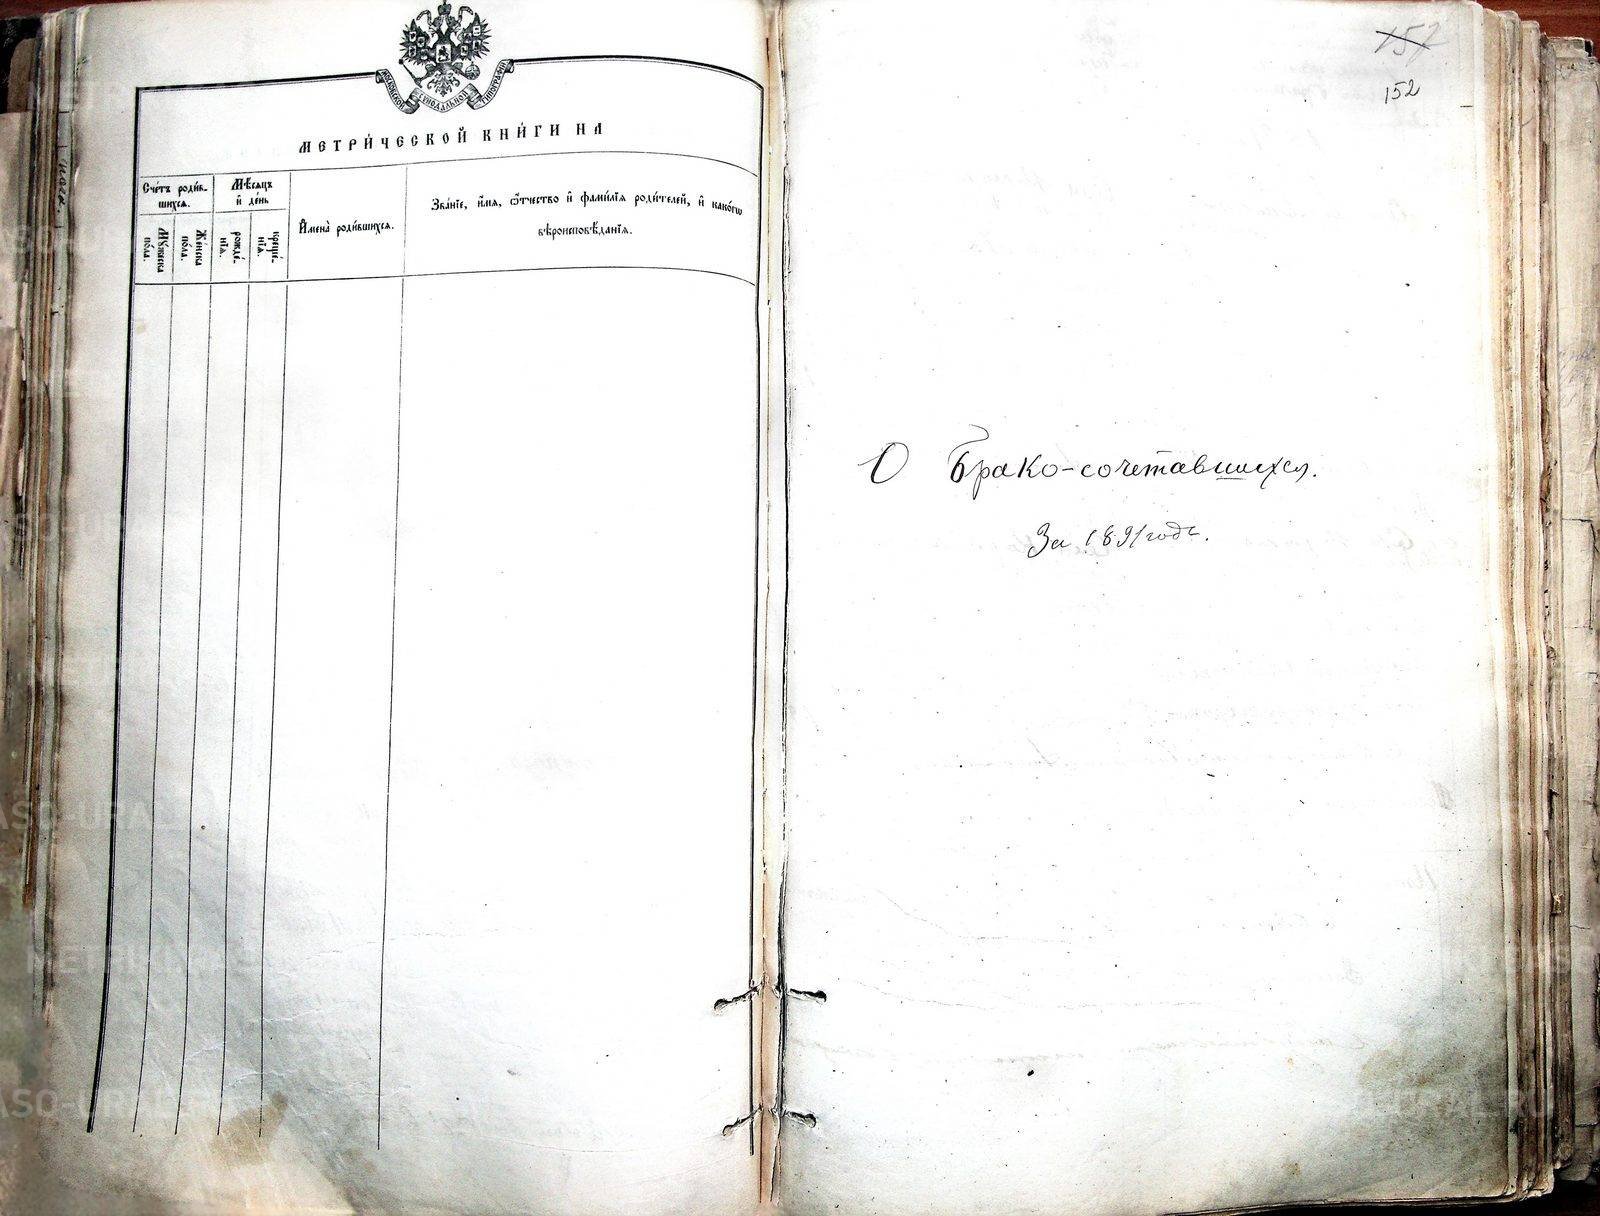 МОСКОВСКОЙ СѴНОДАЛЬНОЙ ТИПОГРАФІИ
МЕТРИ́ЧЕСКОЙ КНИ́ГИ НА
Сче́тъ роди́в-
шихся.
Мѣ́сяцъ
и҆ де́нь
И҆мена̀ роди́вшихся.
Зва́нїе, и҆́мя, ѻ҆́тчество и҆ фами́лїя роди́телей, и҆ како́гѡ
вѣроисповѣ́данїя.
Мꙋ́жеска
по́ла.
Же́нска
по́ла.
рожде́-
нїя.
креще́-
нїя.
157
152
О Брако-сочетавшихся.
За 1891 годъ.
METRIKI.RU
GASO-URAL.RU